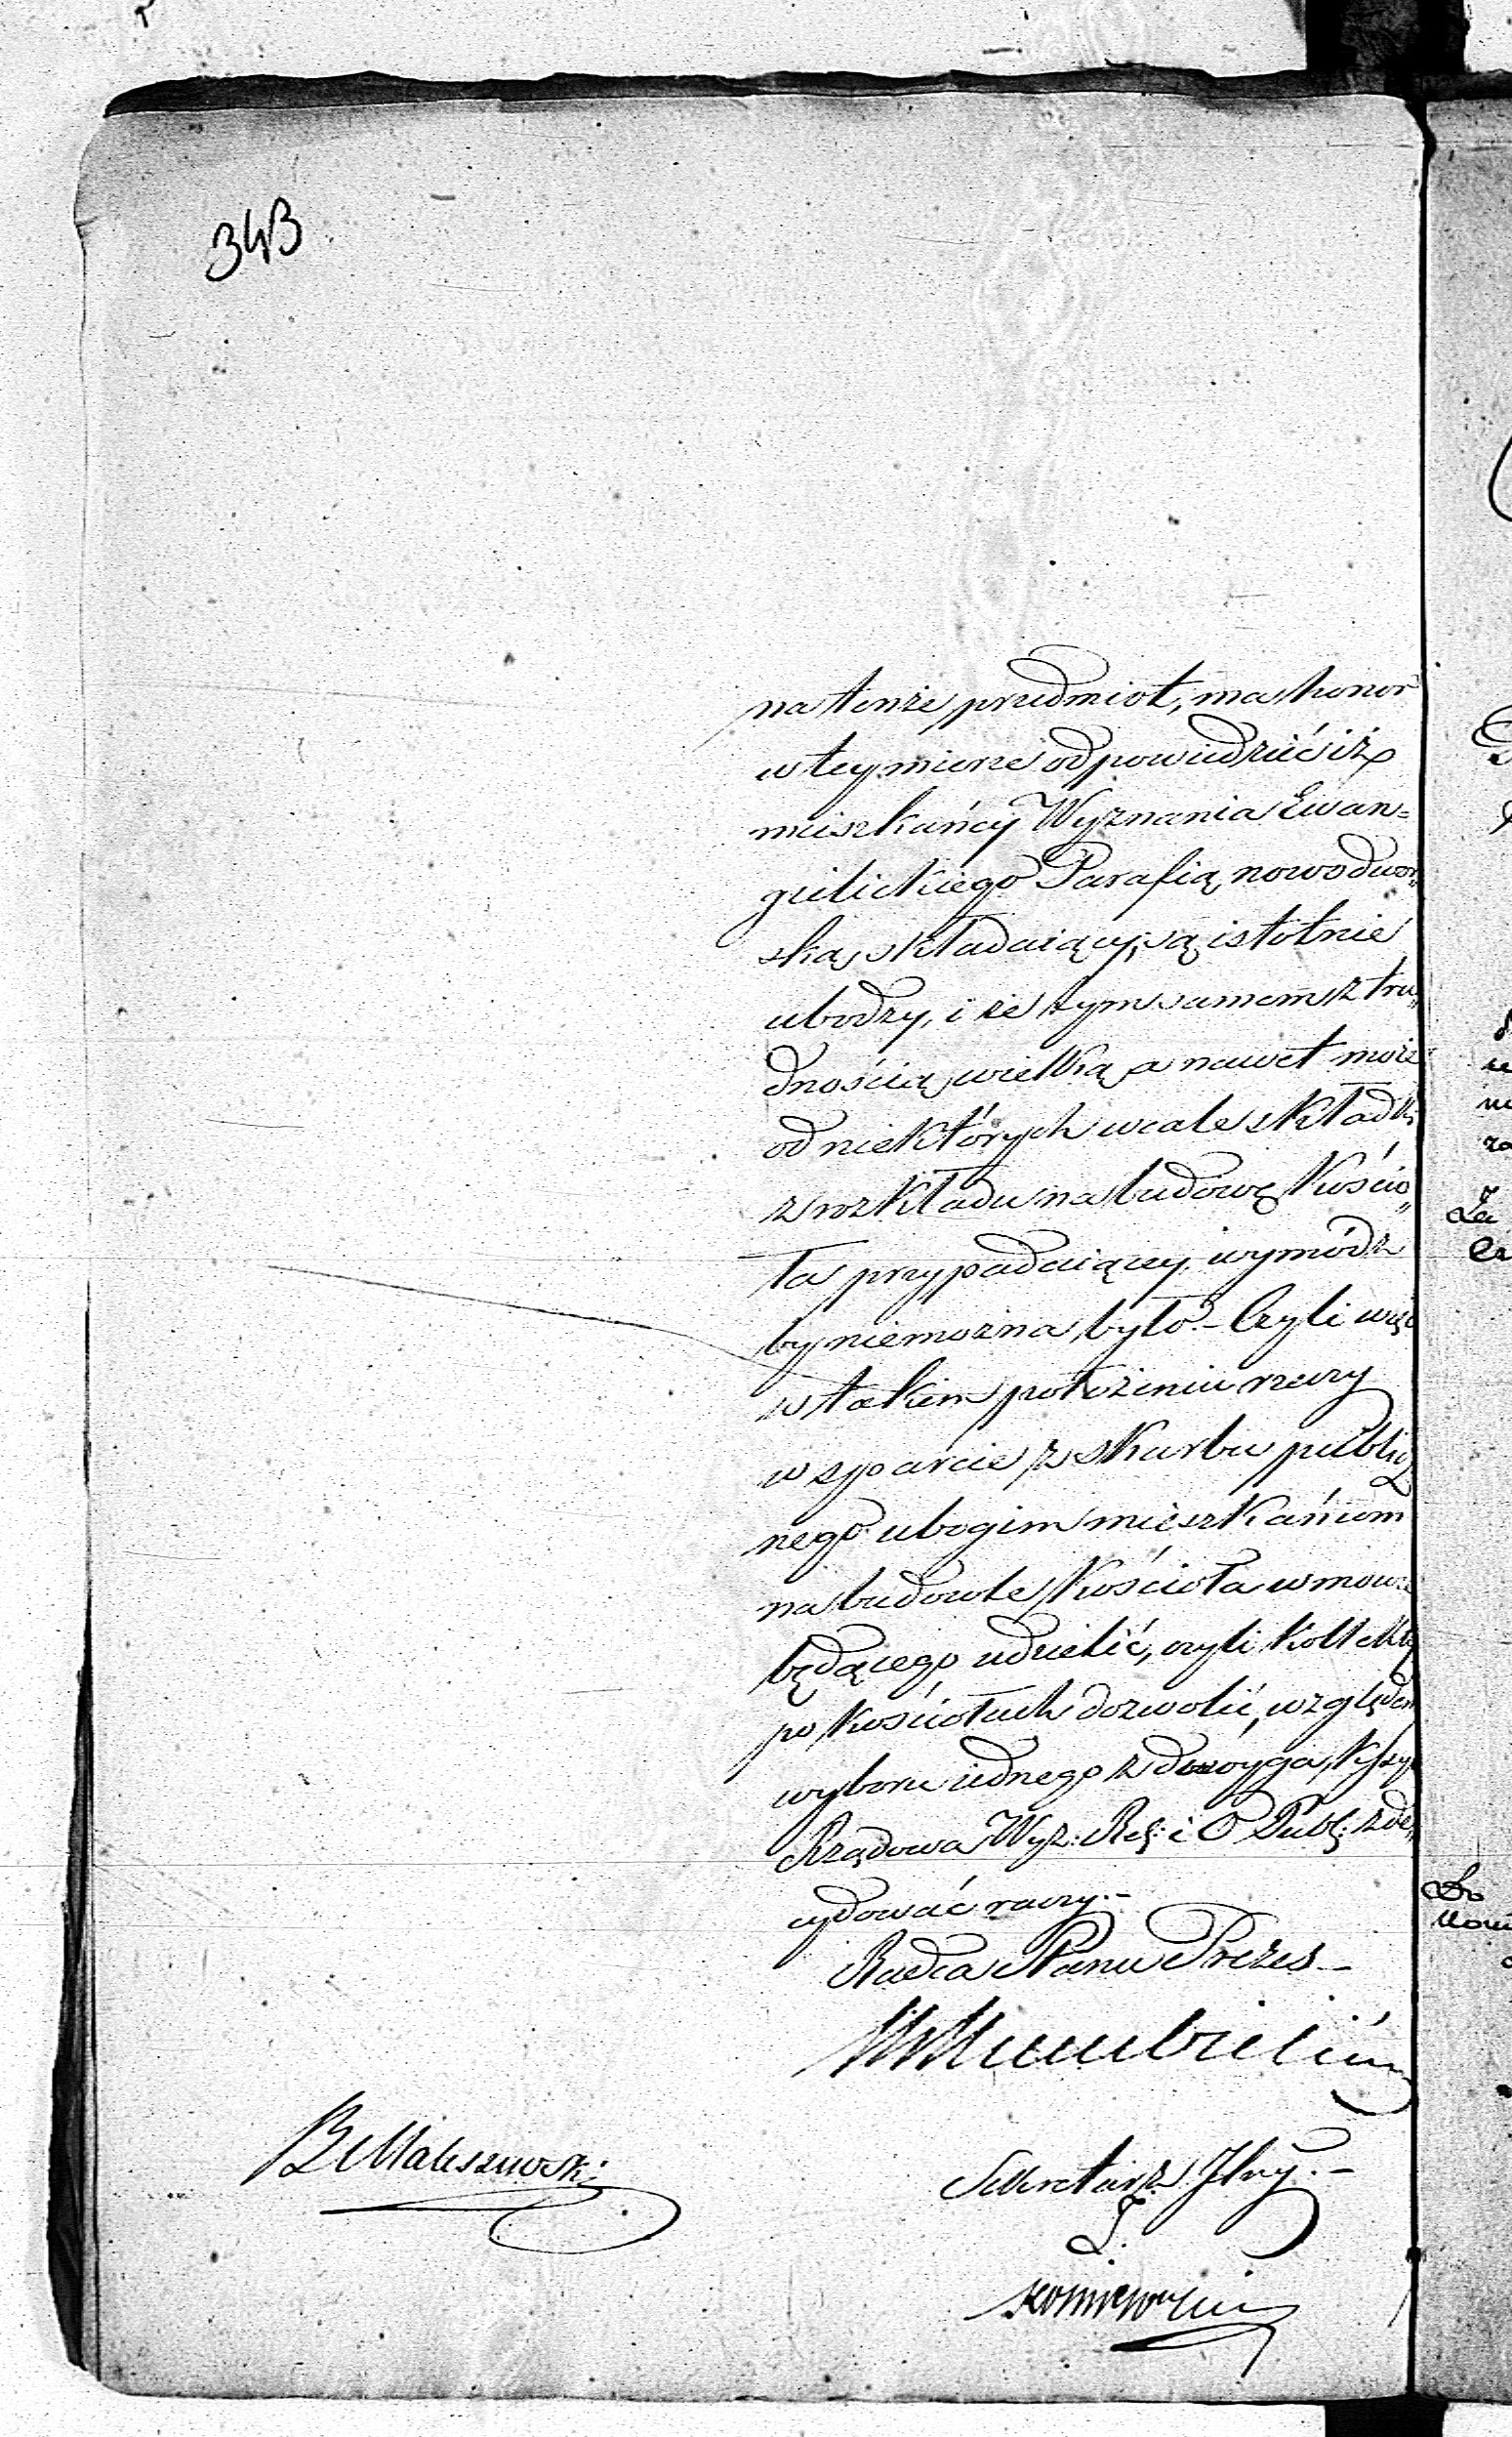 343
na tenże przedmiot, ma honor
w tey mierze odpowiedzieć iż
mieszkańcy Wyznania Ewan=
gelickiego Parafią nowodwor„
ską składaiący, są istotnie
ubodzy, i że tym samem z tru„
dnością wielką a nawet może
od niektórych wcale składki
z rozkładu na budowę Kościo„
ła przypadaiącey, wymódz
by niemożna było.– Czyli więc
w takim położeniu rzeczy
wsparcie z skarbu publicz
nego ubogim mieszkańcom
na budowle Kościoła w mowie
będącego udzielić, czyli Kollektę
po Kościołach dozwolić, względem
wyboru iednego z dwoyga, Kssya
Rządowa Wyz: Rel: i O Publ: zde„
cydować raczy.–
Radca Stanu Prezes –
Sekretarz Jlny.–
B Maliszewski